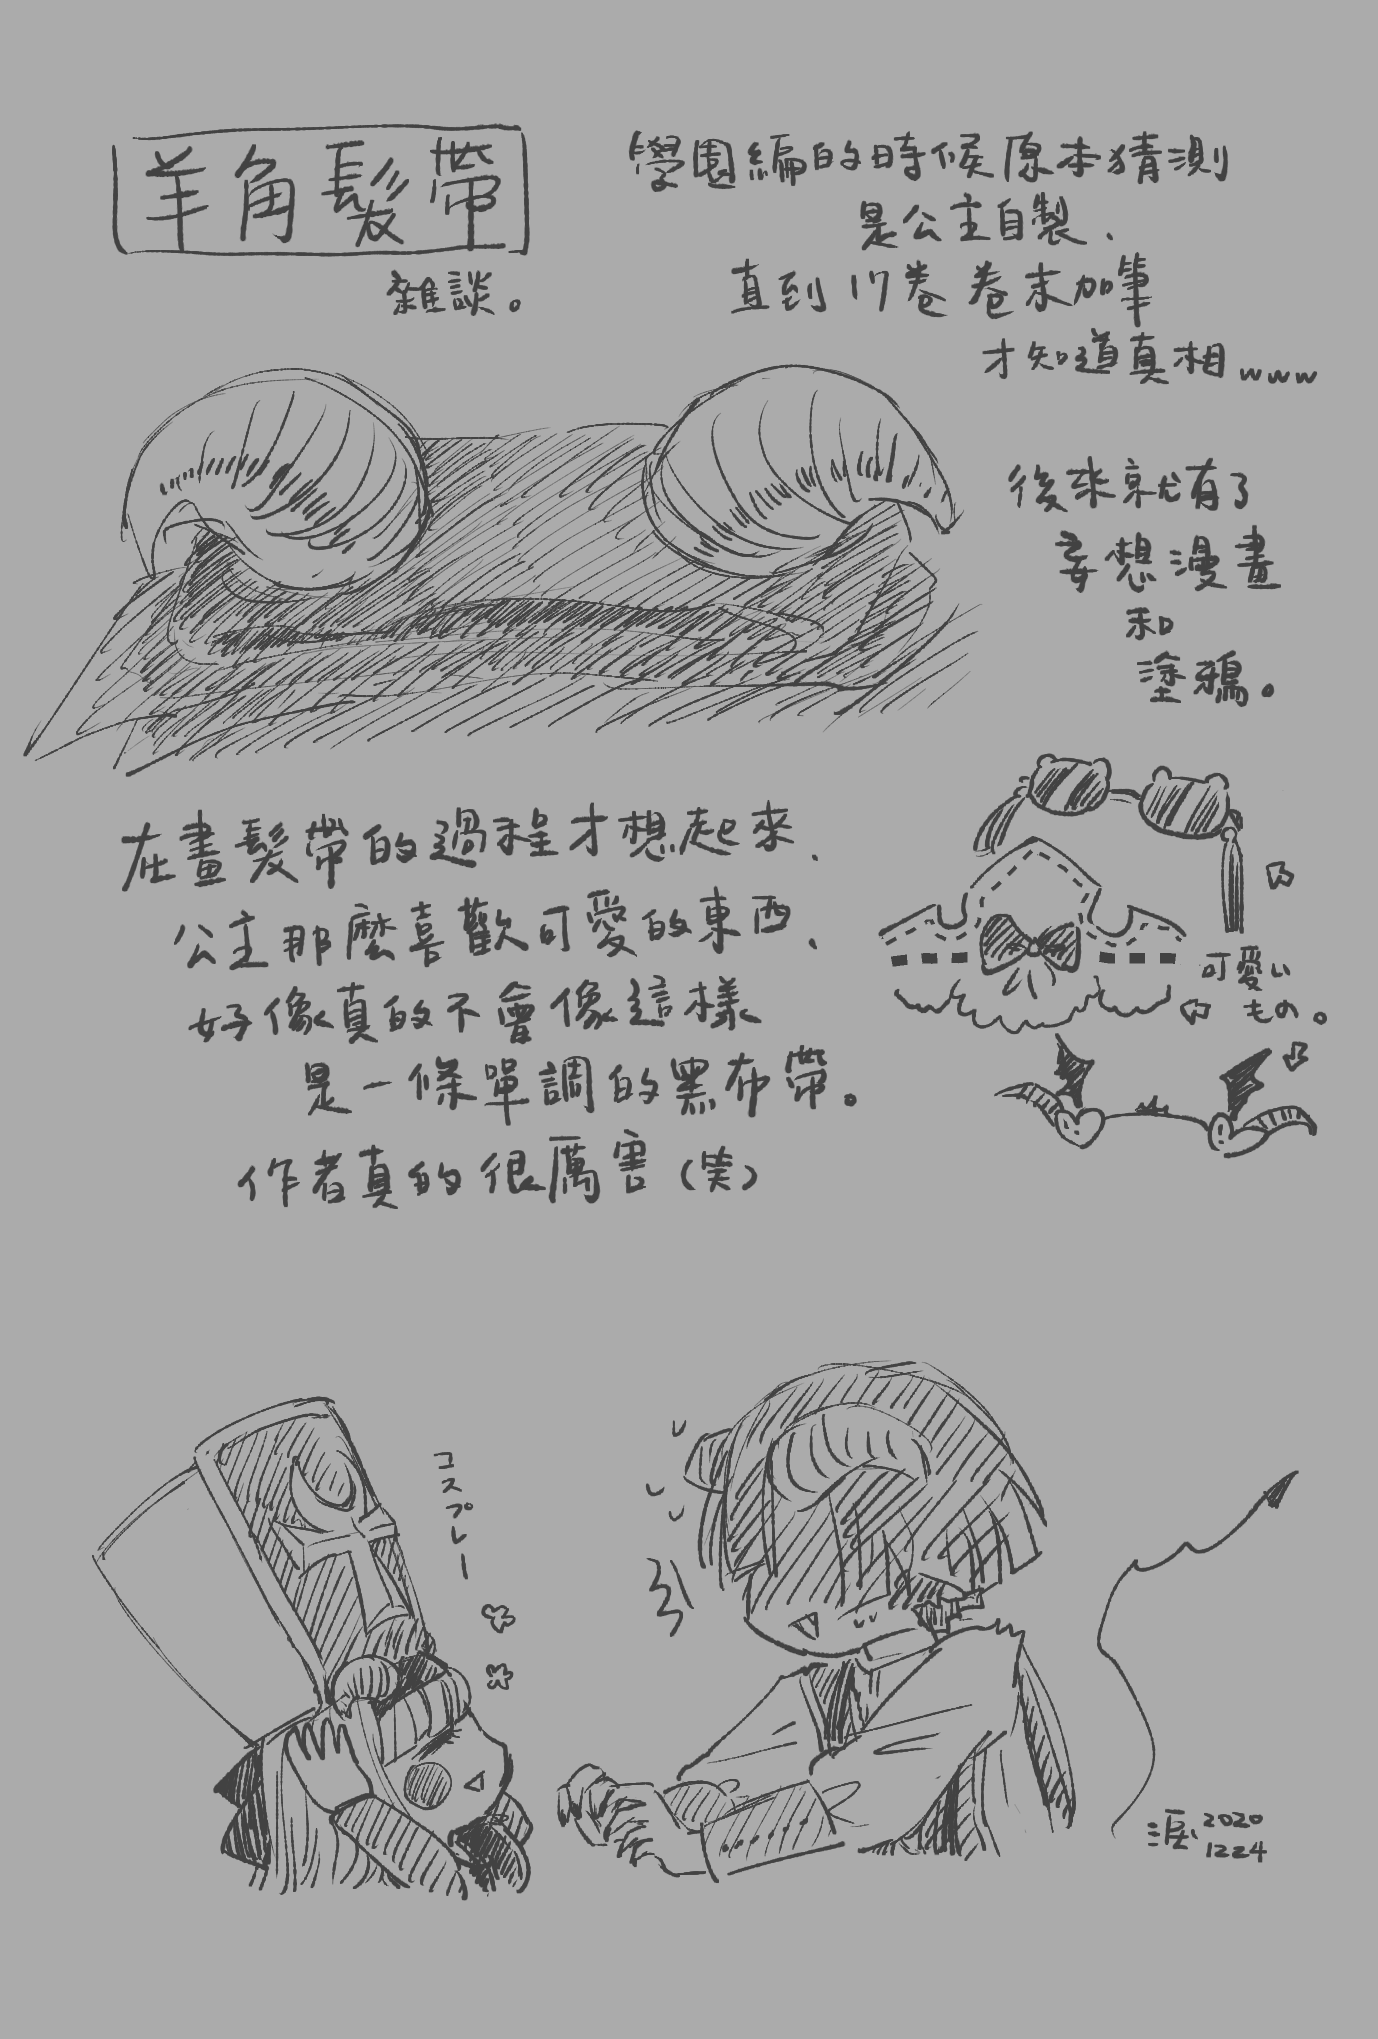 羊角髮帶
雜談。
學園編的時候原本猜測
是公主自製、
直到17卷卷末加筆
才知道真相www
後來就有了
妄想漫畫
和
塗鴉。
在畫髮帶的過程才想起來、
公主那麼喜歡可愛的東西、
好像真的不會像這樣
是一條單調的黑布帶。
作者真的很厲害(笑)
可愛い
もの。
コスプレー
2020
1224